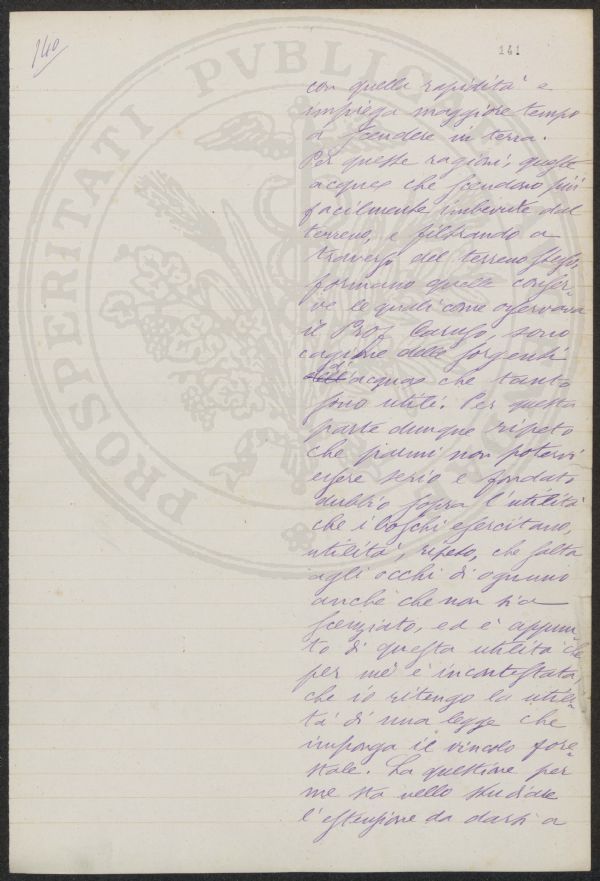 140
141
PROSPERITATI PVBLICAE
con quella rapidità e
impiega maggiore tempo
a scendere in terra.
Per queste ragioni, queste
acque che scendono più
facilmente imbevute dal
terreno, e filtrando a
traverso del terreno stesso,
formano quelle conser-
ve le quali come osservava
il Prof. Caruso, sono
cagione delle sorgenti
dell'acqua che tanto
sono utili. Per questa
parte dunque ripeto
che parmi non potervi
essere serio e fondato
dubbio sopra l'utilità
che i boschi esercitano,
utilità, ripeto, che salta
agli occhi di ognuno
anche che non sia
scienziato, ed è appun-
to di questa utilità che
per me è incontestata,
che io ritengo la utili-
tà di una legge che
imponga il vincolo fore-
stale. La questione per
me sta nello studiare
l'estensione da darsi a